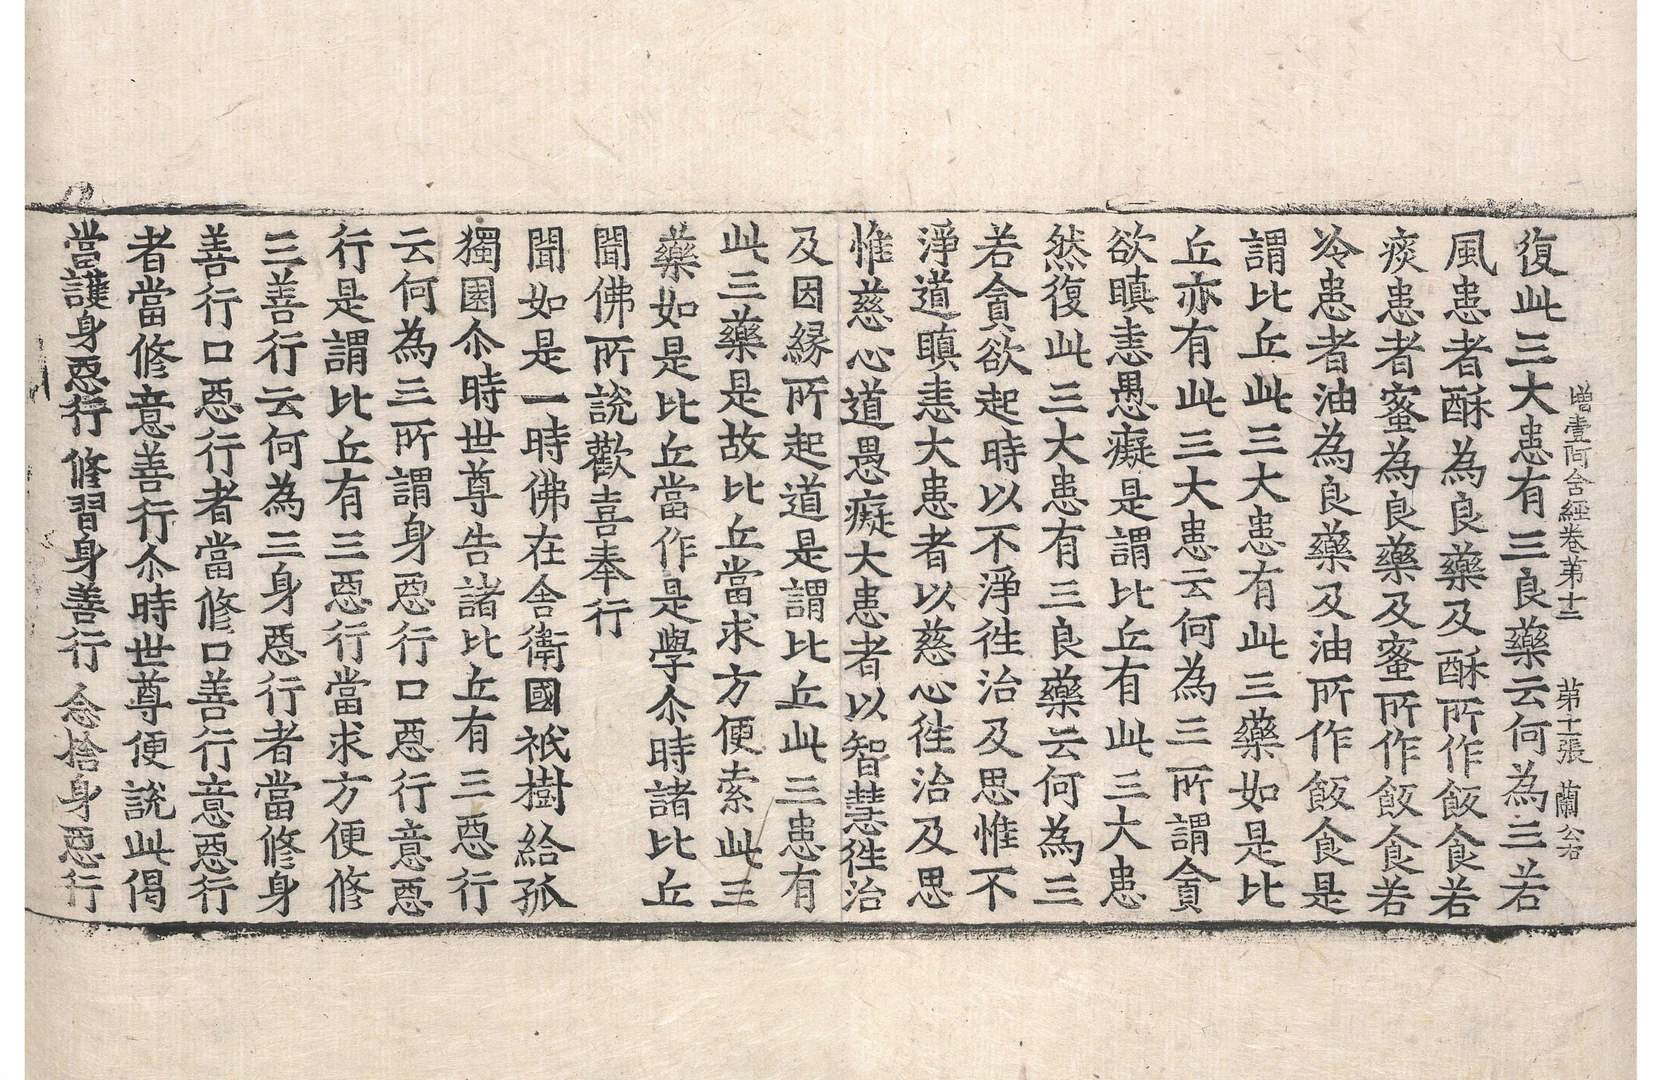 增壹阿含經卷第十二 第十張 蘭 公右
復此三大患有三良藥云何為三若
風患者酥為良藥及酥所作飯食若
痰患者蜜為良藥及蜜所作飯食若
冷患者油為良藥及油所作飯食是
謂比丘此三大患有此三藥如是比
丘亦有此三大患云何為三所謂貪
欲瞋恚愚癡是謂比丘有此三大患
然復此三大患有三良藥云何為三
若貪欲起時以不淨徃治及思惟不
淨道瞋恚大患者以慈心徃治及思
惟慈心道愚癡大患者以智慧徃治
及因緣所起道是謂比丘此三患有
此三藥是故比丘當求方便索此三
藥如是比丘當作是學尒時諸比丘
聞佛所說歡喜奉行
聞如是一時佛在舍衛國祇樹給孤
獨園尒時世尊告諸比丘有三惡行
云何為三所謂身惡行口惡行意惡
行是謂比丘有三惡行當求方便修
三善行云何為三身惡行者當修身
善行口惡行者當修口善行意惡行
者當修意善行尒時世尊便說此偈
當護身惡行 修習身善行 念捨身惡行